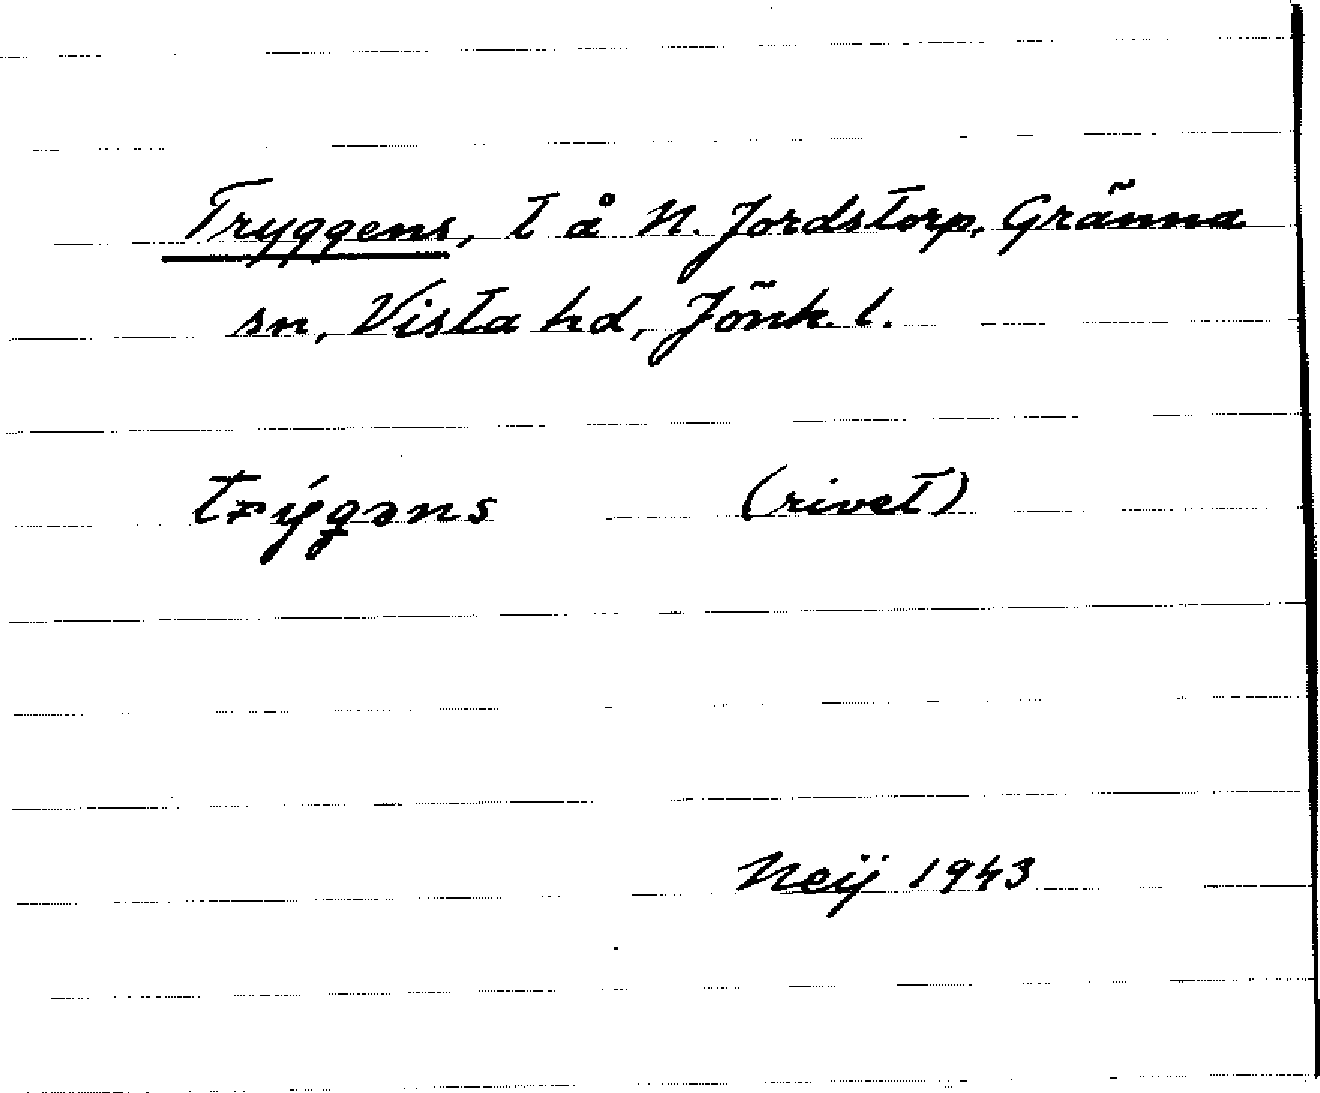 Tryggens, t å N. Jordstorp, Gränna
sn, Vista hd, Jönk. l.
trýgəns (rivet)
Neij 1943